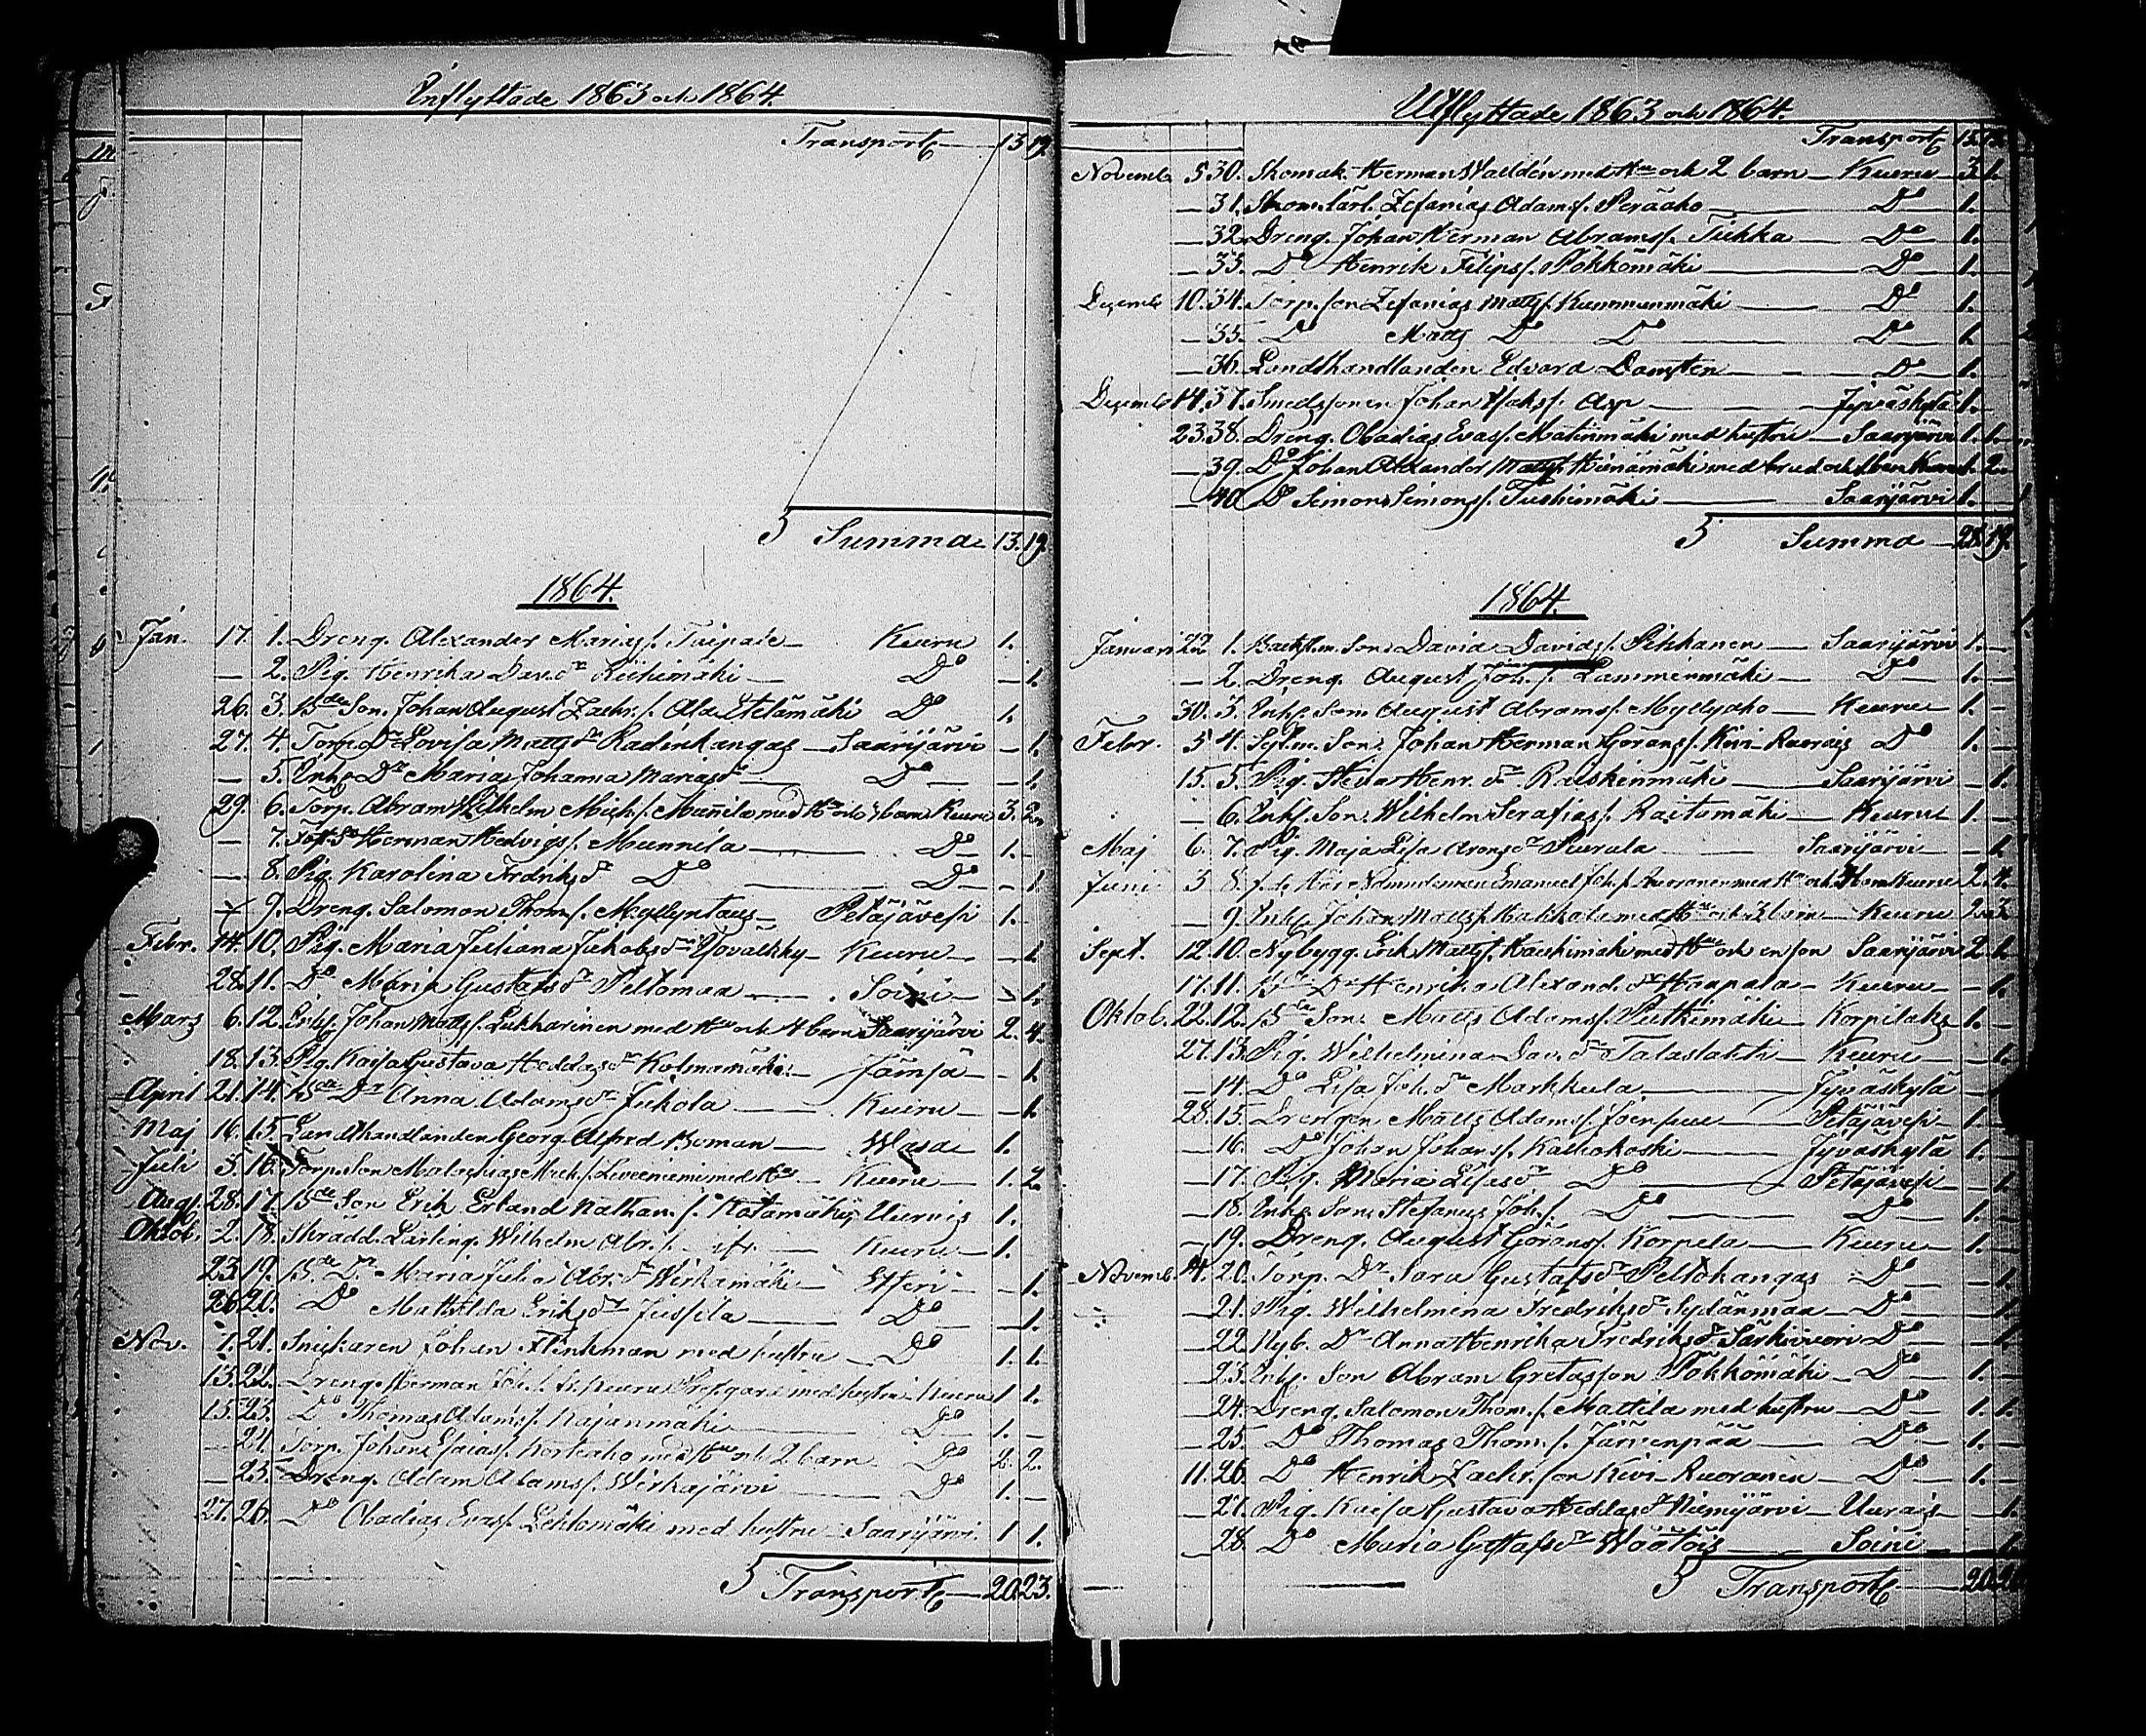 Inflyttade 1863 och 1864.
Transport 13 19.
Summa 13. 19.
1864.
Jan. 17. 1. Dreng. Alexander Mariass. Taipale Keuru 1.
2. Pig. Henrika Dav.dr Riihimäki Do 1.
26. 3. Bde Son. Johan August Zachr.s. Ala Etelämäki Do 1.
27. 4. Torp. Dr Lovisa Mattsdr Radinkangas Saarijärvi 1.
5. Inh. Dr Maria Johanna Mariasdr Do 1.
29. 6. Torp. Abram Wilhelm Mich.s. Munnila med Hu och barn Keuru 3. 2.
7. Herman Hedvigs. Munnila Do 1.
8. Pig. Karolina Fredriksdr Do Do 1.
9. Dreng. Salomon Thom.s. Myllyntaus Petäjävesi 1.
Febr. 14. 10. Pig. Maria Juliana Jakobsdr Keuru 1.
28. 11. Do Maria Gustafsdr Peltomaa Soini 1.
Mars 6. 12. Inh. Johan Matts. Lukkarinen med Hu och 4 barn Saarijärvi 2. 4.
18. 13. Pig. Kaisa Gustava Heddasdr Kolmamäki Jämsä 1.
April 21. 14. Bde Dr Anna Adamsdr Jukola Keuru 1.
Maj 16. 15. Landthandlanden Georg Alfred Boman Wasa 1.
Juli 3. 16. Torp. Son Mich.s. med Hu Keuru 1. 2.
Aug. 28. 17. Bde Son Erik Erland Nathan.s. Katamäki Uurais 1.
Oktob. 2. 18. Skrädd. Lärling. Wilhelm Abr.s. Keuru 1.
23. 19. Bde Dr Maria Julia Abr.dr Wirkamäki Etseri 1.
26. 20. Do Mathilda Eriksdr Jussila Do 1.
Nov. 1. 21. Snickaren Johan Flinkman med hustru Do 1. 1.
13. 22. Dreng. Herman Joh.s. med hustru Keuru 1 1.
15. 23. Do Thomas Adams. Kajanmäki Do 1.
24. Torp. Johan Esaias. Korteaho med Hu och 2 barn Do 2. 2.
25. Dreng. Adam Adams. Wirkajärvi Do 1.
27. 26. Do Obadias Evas. Lehtomäki med hustru Saarijärvi 1 1.
Transport 20. 23.
Utflyttade 1863 och 1864.
Transport 15. 15.
Novemb. 5 30. Skomak. Herman Wallden med Hu och 2 barn Keuru 3. 1.
31. Skom. lärl. Zefanias Adams. Peräaho Do 1.
32. Dreng. Johan Herman Abrams. Tiikka Do 1.
33. Do Henrik Filips. Pökkömäki Do 1.
Decemb 10. 34. Torp. son Zefanias Matts. Kummunmäki Do 1.
35. Do Matts Do Do Do 1
36. Landthandlanden Edvard Damsten Do 1.
Decemb 14. 37. Smedssonen Johan Isaks. Asp Jyväskylä 1.
23. 38. Dreng. Obadias Evas. Matinmäki med hustru Saarijärvi 1. 1.
39. Do Johan Alexander Matts. Hienämäki med brud och 1 barn Keuru 1. 2.
40. Do Simon Simons. Tuskimäki Saarijärvi 1.
Summa 28. 19.
1864.
Januari 22 1. Son David Davids. Pikkanen Saarijärvi 1.
2. Dreng. August Joh.s. Lamminmäki Do 1.
30. 3. Inh. Son August Abrams. Myllyaho Keuru 1.
Febr. 5 4. Son. Johan Herman Görans. Kivi-Ruorais Do 1.
15. 5. Pig. Heda Henr.dr Raiskinmäki Saarijärvi 1.
6. Inh. Son. Wilhelm Serafias. Raitamäki Keuru 1.
Maj 6. 7. Pig. Maja Lisa Aronsdr Purala Saarijärvi 1.
Juni 3 8. Emanuel Joh.s. Ruoranen med Hu och barn Keuru 2. 4.
9. Inh. Johan Matts. Hakkola med Hu och 3 barn Keuru 2. 3.
Sept. 12. 10. Nybygg. Erik Matts. Kaukimäki med Hu och en son Saarijärvi 2. 1.
17. 11. Dr Henrika Alexand.dr Haapala Keuru 1.
Oktob. 22. 12. Bde Son. Matts Adams. Putkimäki Korpilaks 1.
27. 13. Pig. Wilhelmina Dav.dr Talaslahti Keuru 1.
14. Do Lisa Joh.dr Markkula Jyväskylä 1.
28. 15. Drengen Matts Adams. Joensuu Petäjävesi 1.
16. Do Johan Johans. Kalliokoski Jyväskylä 1.
17. Pig. Maria Lisasdr Do Petäjävesi 1.
18. Inh. Son. Stefanus Joh.s. Do Do 1.
19. Dreng. August Görans. Korpela Keuru 1.
Novemb. 4. 20. Torp. Dr Sara Gustafsdr Peltokangas Do 1.
21. Pig. Wilhelmina Fredriksdr Sydänmaa Do 1.
22. Nyb. Dr Anna Henrika Fredriksdr Särkivuori Do 1.
23. Inh. Son Abram Gretasson Pökkömäki Do 1.
24. Dreng. Salomon Thom.s. Mattila med hustru Do 1. 1.
25. Do Thomas Thom.s. Järvenpää Do 1.
11. 26. Do Henrik Zachr.son Kivi-Ruoranen Do 1.
27. Pig. Kaisa Gustava Heddasdr Niemijärvi Uurais 1.
28. Do Maria Gustafsdr Wäätäis Soini 1.
Transport 20.